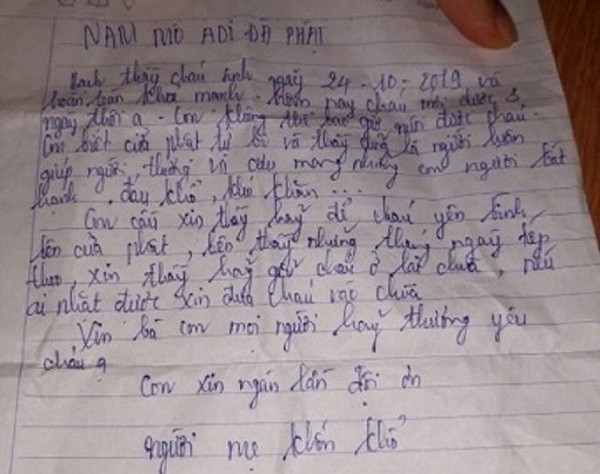 NAM MÔ ADI ĐÀ PHẬT
Bạch thầy cháu sinh ngày 24-10-2019 và
hoàn toàn khỏe mạnh. Hôm nay cháu mới được 3
ngày thôi ạ. Con không thể bao giờ được cháu.
Con biết cửa phật từ bi và thầy cũng là người luôn
giúp người, thương và cưu mang những con người bất
hạnh, đau khổ, khó khăn...
Con cầu xin thầy hãy để cháu yên bình
bên cửa phật, bên thầy những tháng ngày tiếp
theo, xin thầy hãy giữ cháu ở lại chùa, nếu
ai nhặt được xin đưa cháu vào chùa
Xin bà con mọi người hãy thương yêu
cháu ạ
Con xin ngàn lần đội ơn
Người mẹ khốn khổ